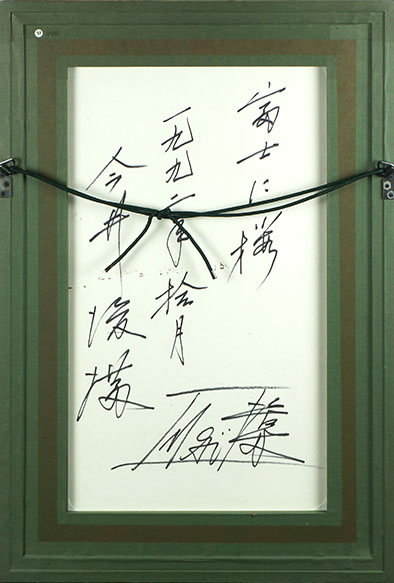 富士に桜
一九九二年拾月
今井俊満